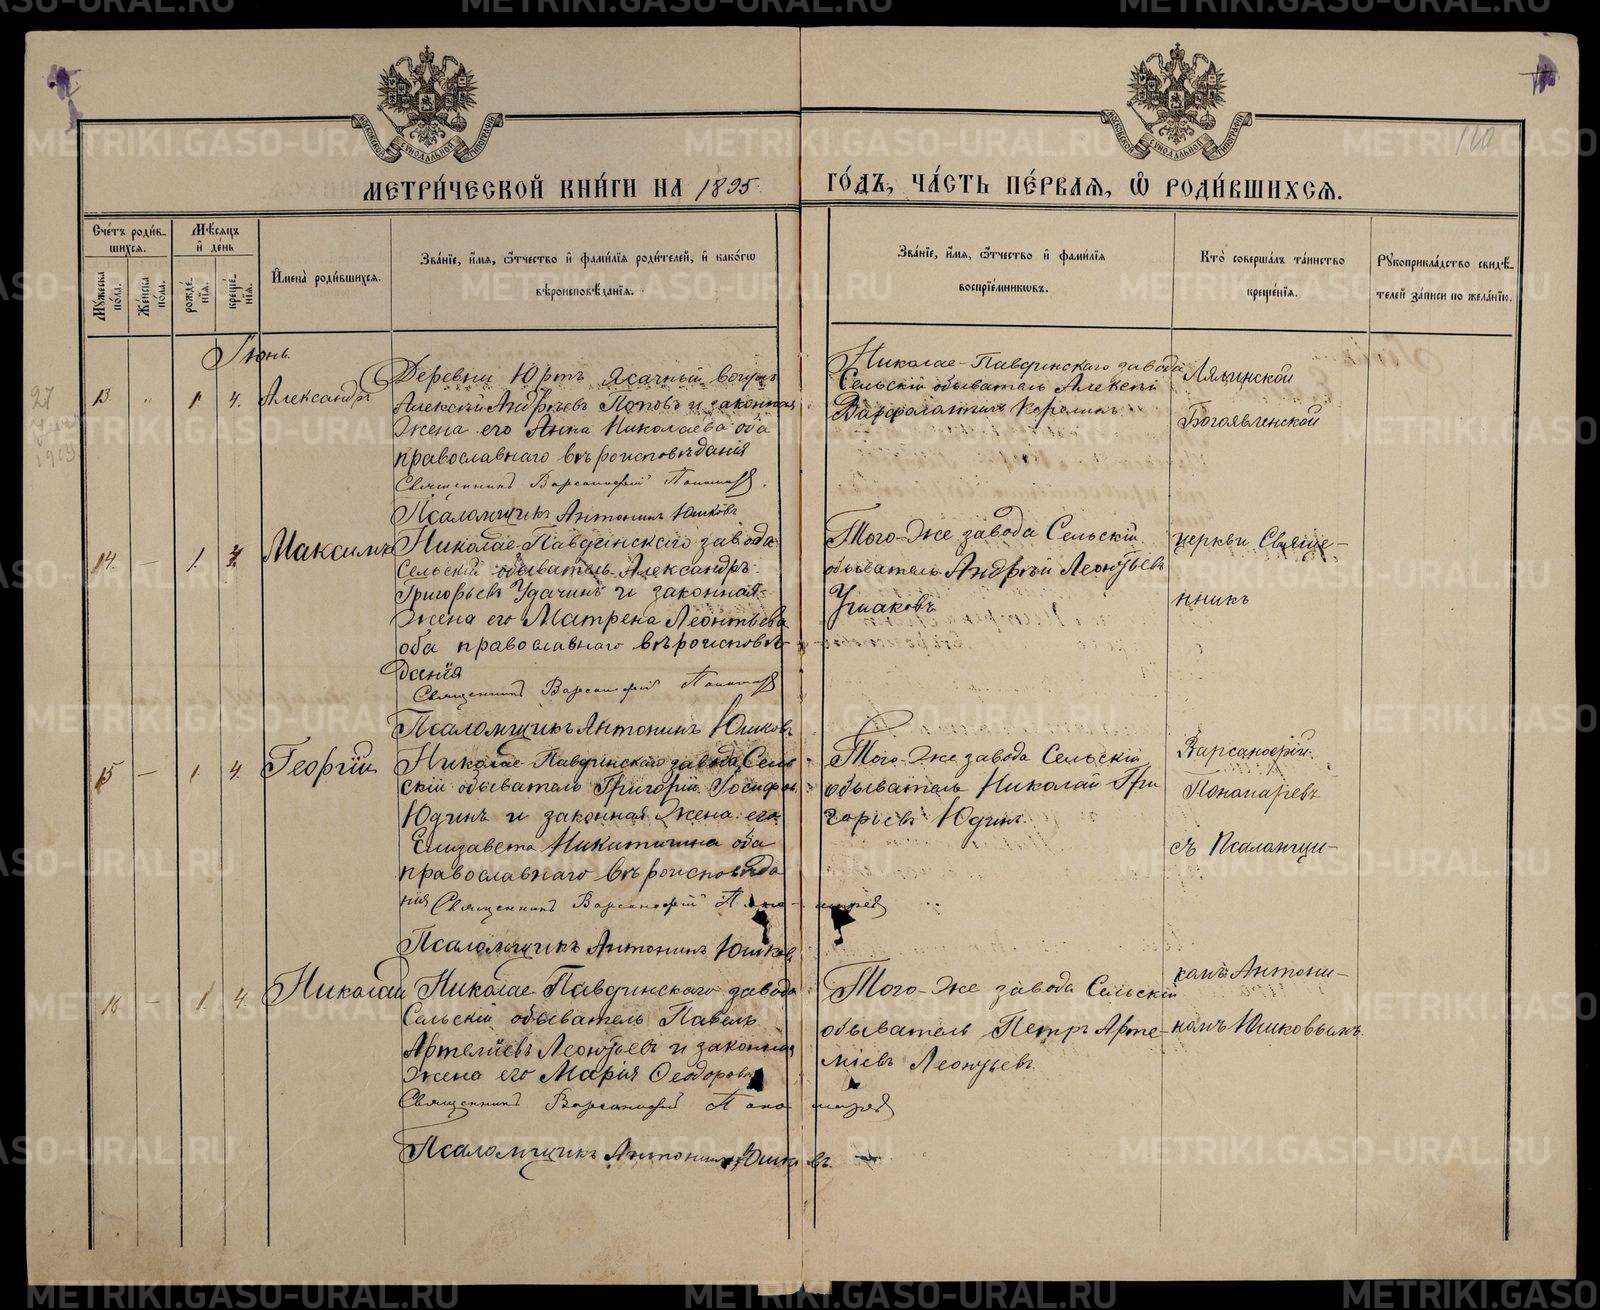 МЕТРИ́ЧЕСКОЙ КНИ́ГИ НА 1895.
ГО́ДЪ, ЧА́СТЬ ПЕ́РВАЯ, Ѽ РОДИ́ВШИХСЯ.
160
Сче́тъ роди́в-
шихся.
Мѣ́сяцъ
и҆ де́нь
Му́жеска по́ла.
Же́нска по́ла.
рожде́-нїѧ.
креще́-нїѧ.
И҆мена̀ роди́вшихся.
Зва́нїе, и҆́мя, ѻ҆́тчество и҆ фами́лїя роди́телей, и҆ како́гѡ
вѣроисповѣ́данїя.
Зва́нїе, и҆́мя, ѻ҆́тчество и҆ фами́лїя
воспрїе́мниковъ.
Кто̀ соверша́лъ та́инство
креще́нїя.
Рꙋкоприкла́дство свидѣ́-
телей за́писи по жела́нїю.
Іюнь.
27
1919
13 " 1. 4. Александръ
Деревни Юртъ Ясачный вогулъ
Алексѣй Андрѣевъ Поповъ и законная
жена его Анна Николаева оба
православнаго вѣроисповѣданія
Священникъ Варсонофій Пономарев.
Псаломщикъ Антонинъ Юшковъ
Николае-Павдинскаго завода
Сельскій обыватель Алексѣй
Варфаламѣевъ Карелинъ
Лялинской
Богоявленской
14. — 1. 4. Максимъ
Николае-Павдинскаго завода
Сельскій обыватель Александръ
Григорьевъ Удачинъ и законная
жена его Матрена Леонтьева
оба православнаго вѣроисповѣ-
данія
Священникъ Варсонофій Пономарев
Псаломщикъ Антонинъ Юшковъ
Того-же завода Сельскій
обыватель Андрѣй Леонтьевъ
Ушаковъ
церкви Свяще-
нникъ
15 — 1. 4. Георгій
Николае-Павдинскаго завода Сель
скій обыватель Григорій Іосифов
Юдинъ и законная жена его
Елизавета Никитична оба
православнаго вѣроисповѣда
нія Священникъ Варсонофій Пономарев
Псаломщикъ Антонинъ Юшков
Того-же завода Сельскій
обыватель Николай Гри
горьевъ Юдинъ.
Варсанофій
Пономаревъ
съ Псаломщи-
16 — 1. 4. Николай
Николае-Павдинскаго завода
Сельскій обыватель Павелъ
Артеміевъ Леонтьевъ и законная
жена его Марья Феодорова
Священникъ Варсонофій Пономарев
Псаломщикъ Антонинъ Юшковъ.
Того-же завода Сельскій
обыватель Петръ Арте-
міевъ Леонтьевъ.
комъ Антони-
номъ Юшковымъ
METRIKI.GASO-URAL.RU